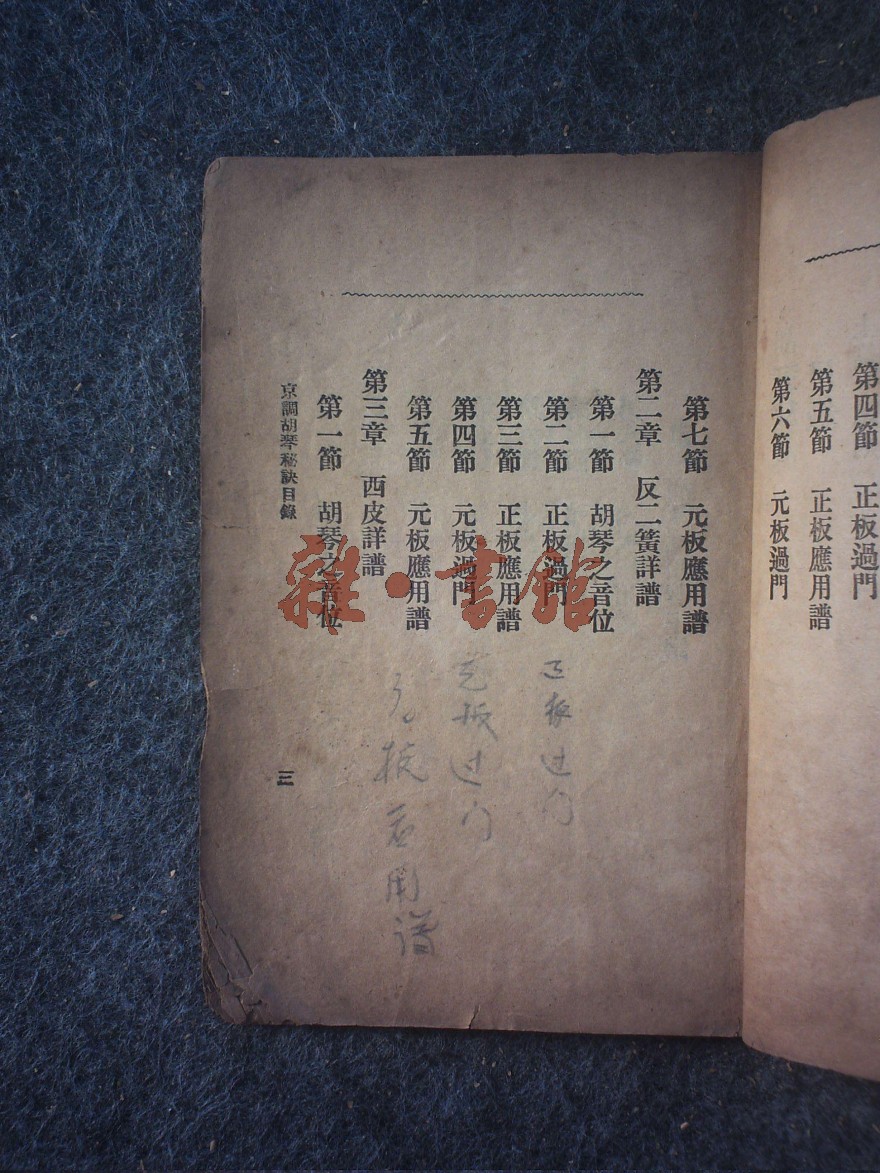 第四節 正板過門
第五節 正板應用譜
第六節 元板過門
第七節 元板應用譜
第二章 反二簧詳譜
第一節 胡琴之音位
第二節 正板過門
第三節 正板應用譜
第四節 元板過門
第五節 元板應用譜
第三章 西皮詳譜
第一節 胡琴之音位
京調胡琴秘訣目錄
三
正板过门
板过门
板应用谱
雜·書館